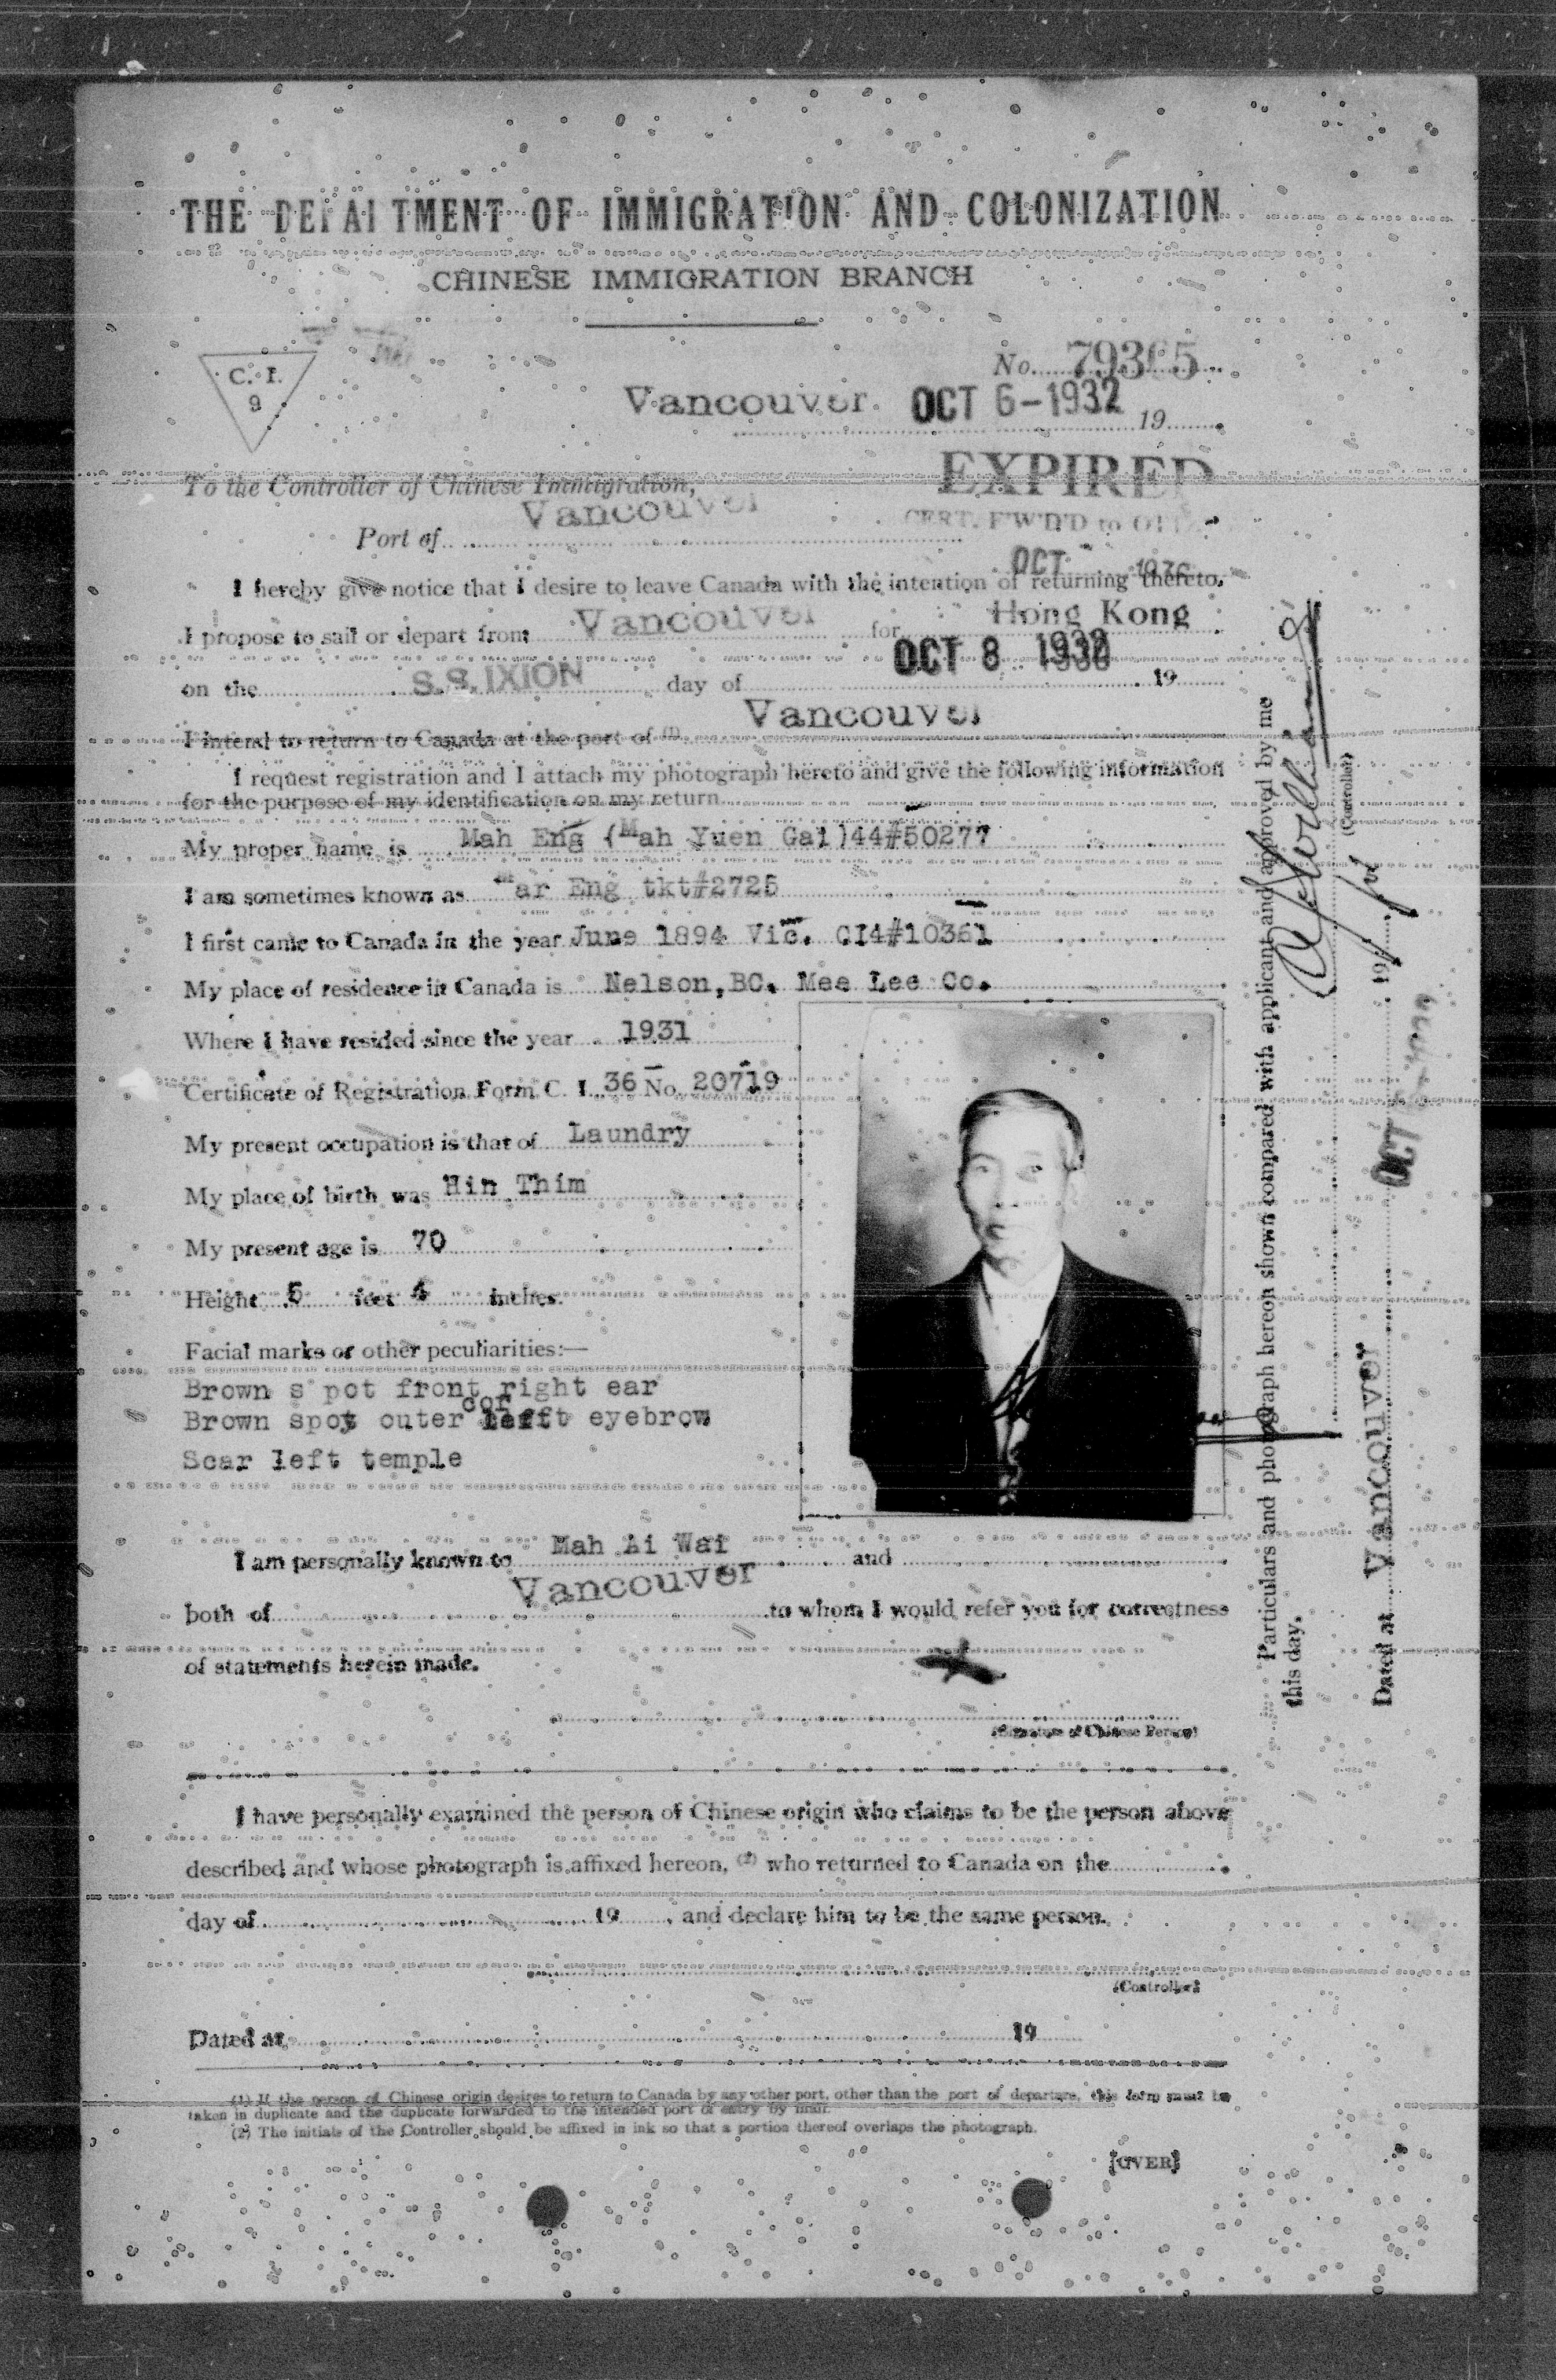 THE DEPARTMENT OF IMMIGRATION AND COLONIZATION
CHINESE IMMIGRATION BRANCH
C. I.
9
No. 79365
Vancouver. OCT 6-1932 19
To the Controller of Chinese Immigration,
EXPIRED
Vancouver
CERT. F'W'D'D to
Port of
OCT
I hereby give notice that I desire to leave Canada with the intention of returning thereto.
I propose to sail or depart from Vancouver for Hong Kong
on the S.S. IXION day of OCT 8 1932 19
I intend to return to Canada at the port of (1) Vancouver
I request registration and I attach my photograph hereto and give the following information
for the purpose of my identification on my return
My proper name is Mah Eng (Mah Yuen Gai)44#50277
I am sometimes known as Mar Eng tkt#2725
I first came to Canada in the year June 1894 Vic. CI4#10361
My place of residence in Canada is Nelson,BC. Mee Lee Co.
Where I have resided since the year 1931
Certificate of Registration Form C. I. 36 No. 20719
My present occupation is that of Laundry
My place of birth was Hin Thim
My present age is 70
Height 5 feet 4 inches.
Facial marks or other peculiarities:—
Brown s pot front right ear
cor
Brown spot outer left eyebrow
Scar left temple
I am personally known to Mah Ai Wai and
both of Vancouver to whom I would refer you for correctness
of statements herein made.
(Signature of Chinese Person)
I have personally examined the person of Chinese origin who claims to be the person above
described and whose photograph is affixed hereon, (2) who returned to Canada on the
day of 19 , and declare him to be the same person.
(Controller)
Dated at 19
(1) If the person of Chinese origin desires to return to Canada by any other port, other than the port of departure, this form must be
taken in duplicate and the duplicate forwarded to the intended port of entry by mail.
(2) The initials of the Controller should be affixed in ink so that a portion thereof overlaps the photograph.
[OVER]
Particulars and photograph hereon shown compared with applicant and approved by me
this day.
(Controller)
Dated at Vancouver 19
OCT